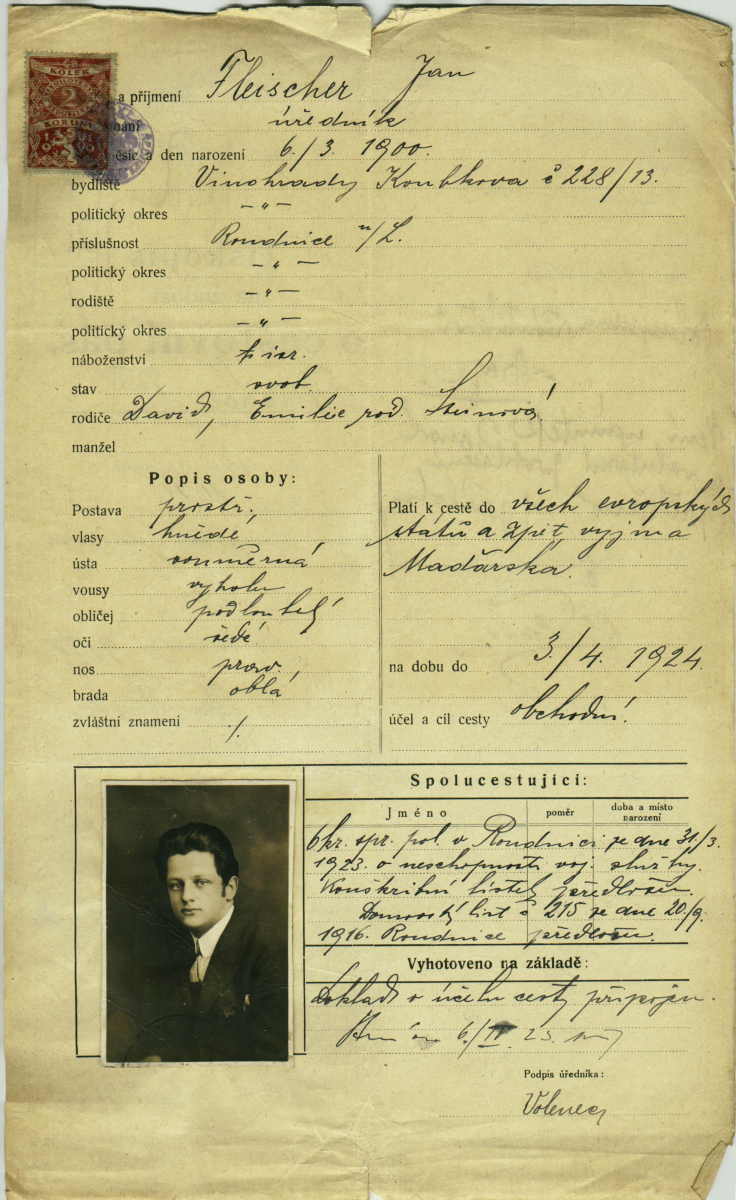 KOLEK
2
KORUNY
a příjmení Fleischer Jan
úředník
a den narození 6./3. 1900.
bydliště Vinohrady Koubkova č 228/13.
politický okres — " —
příslušnost Roudnice n/L.
politický okres — " —
rodiště — " —
politický okres — " —
náboženství isr.
stav svob.
rodiče David, Emilie roz. Steinová
manžel
Popis osoby:
Postava prostř.
vlasy hnědé
ústa souměrná
vousy vyholen
obličej podlouhlý
oči šedé
nos prav.
brada oblá
zvláštní znamení /.
Platí k cestě do všech evropských
států a zpět vyjma
Maďarska.
na dobu do 3./4. 1924.
účel a cíl cesty obchodní.
Spolucestující:
Jméno poměr doba a místo narození
spr. pol. v Roudnici ze dne 31./3.
1923. o neschopnosti voj. služby.
Konskribní lístek předložen.
Domovský list č 215 ze dne 20./9.
1916. Roudnice předložen.
Vyhotoveno na základě:
Doklad o účelu cesty připojen.
6./IV. 23.
Podpis úředníka:
Volenec